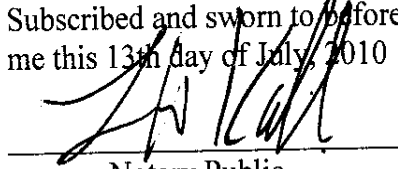 Subscribed and sworn to before
me this 13th day of July, 2010
Notary Public